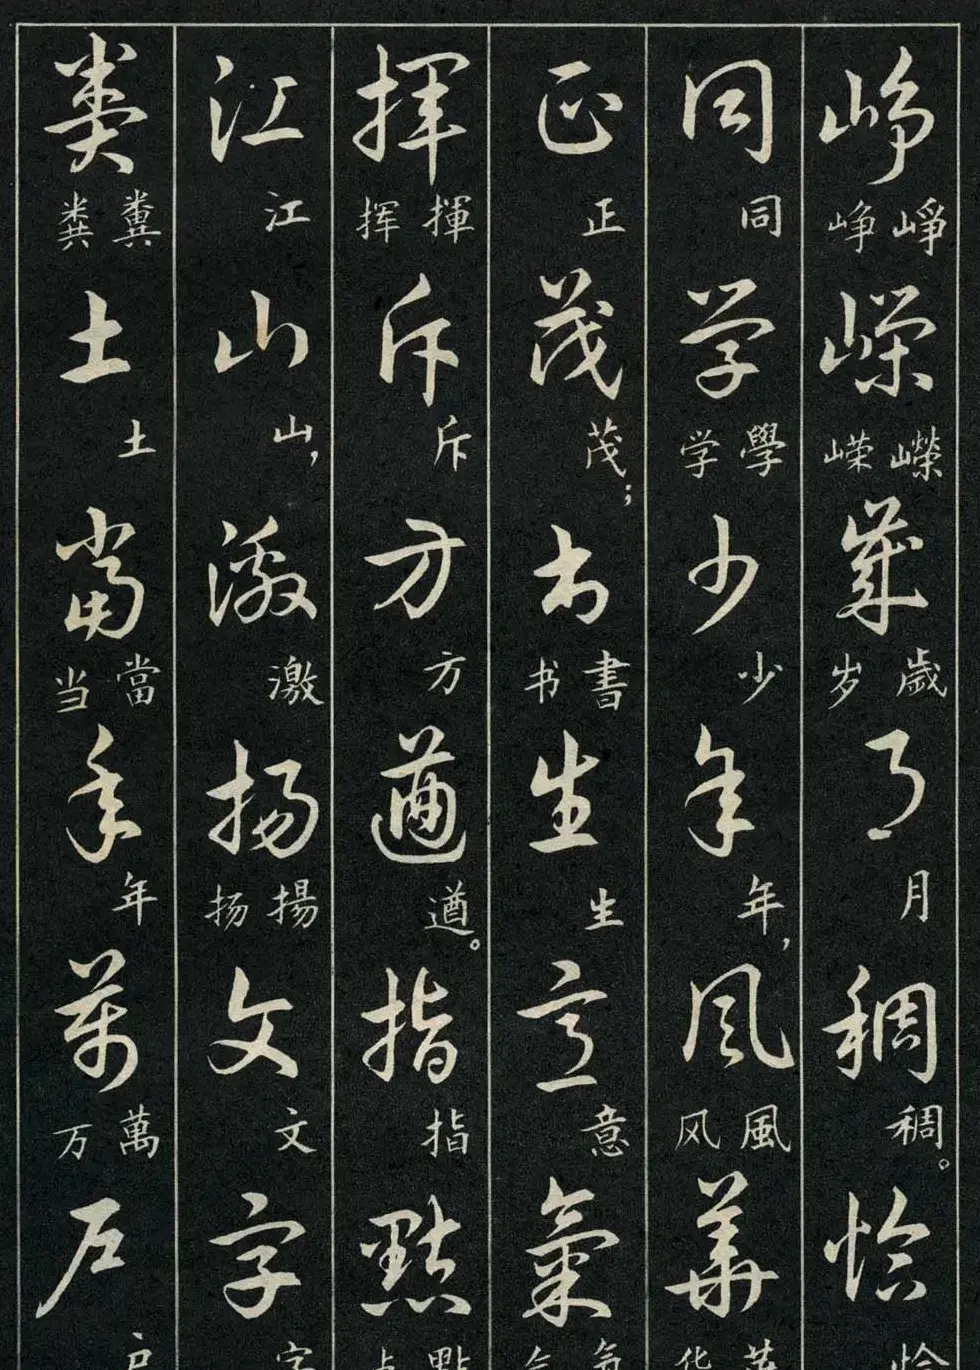 峥 崢 峥 嵘 嶸 嵘 歲 歲 岁 月 月 稠 稠。 恰 恰
同 同 学 學 学 少 少 年 年， 風 風 风 華 華 华
正 正 茂 茂； 书 書 书 生 生 意 意 氣 氣 气
揮 揮 挥 斥 斥 方 方 遒 遒。 指 指 點 點 点
江 江 山 山， 激 激 扬 揚 扬 文 文 字 字
粪 糞 粪 土 土 當 當 当 年 年 萬 萬 万 户 户